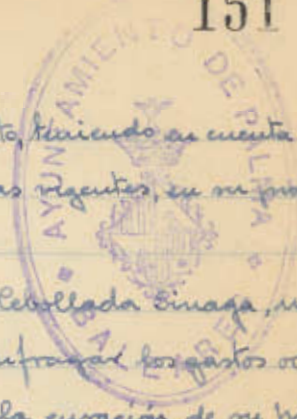 151
AYUNTAMIENTO DE PALMA
BALEARES
to, teniendo en cuenta
as vigentes, en su
Cebollada Sinaga,
sufragar los gastos
la curación de su